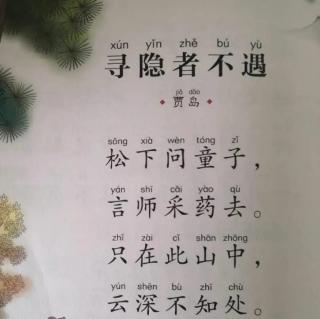 xún yǐn zhě bú yù
寻隐者不遇
jiǎ dǎo
贾岛
sōng xià wèn tóng zǐ
松下问童子，
yán shī cǎi yào qù
言师采药去。
zhǐ zài cǐ shān zhōng
只在此山中，
yún shēn bù zhī chù
云深不知处。